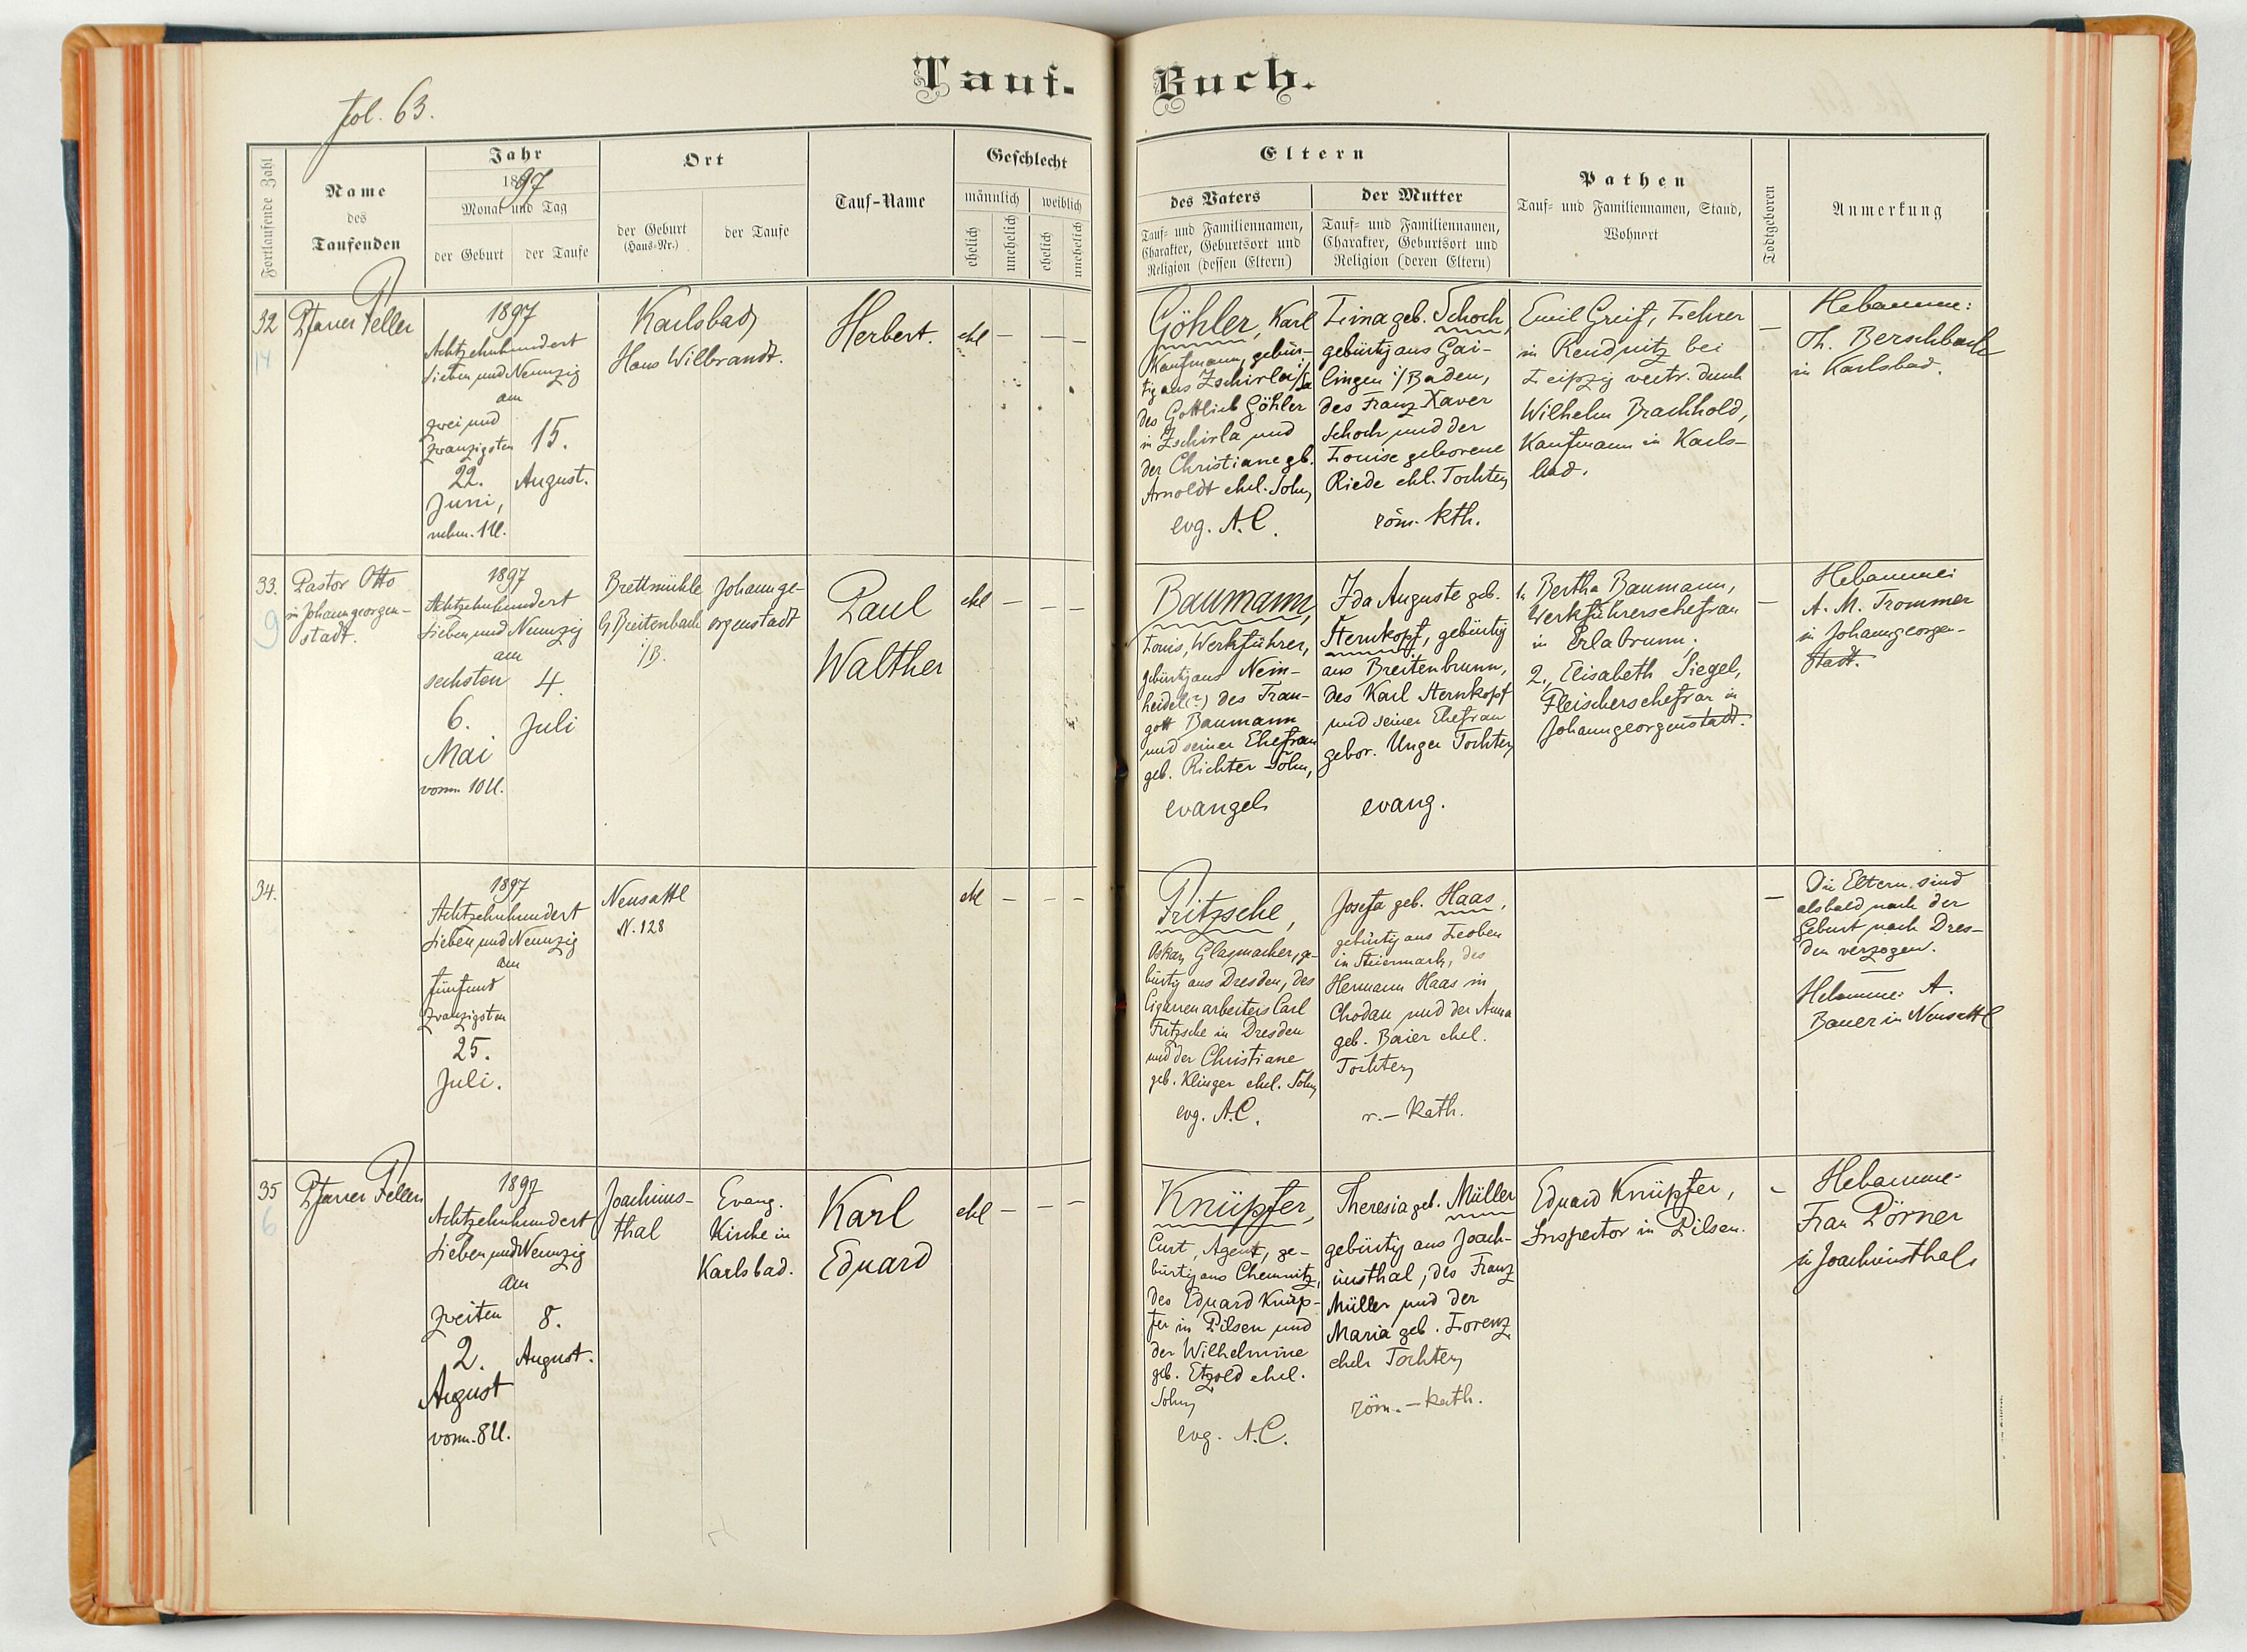 Tauf-
Buch.
fol. 63.
Fortlaufende Zahl
Name
des
Taufenden
Jahr
1897
Monat und Tag
der Geburt
der Taufe
Ort
der Geburt
(Haus-Nr.)
der Taufe
Tauf-Name
Geschlecht
männlich
weiblich
ehelich
unehelich
ehelich
unehelich
Eltern
des Vaters
Tauf- und Familiennamen,
Charakter, Geburtsort und
Religion (dessen Eltern)
der Mutter
Tauf- und Familiennamen,
Charakter, Geburtsort und
Religion (deren Eltern)
Pathen
Tauf- und Familiennamen, Stand,
Wohnort
Todtgeboren
Anmerkung
32
14
Pfarrer Feller
1897
Achtzehnhundert
sieben und Neunzig
am
zwei und
zwanzigsten
22.
Juni,
nchm. 1 U.
15.
August.
Karlsbad
Haus Wilbrandt.
Herbert.
ehl — — —
Göhler, Karl
Kaufmann, gebür-
tig aus Zschirla i/Sa
des Gottlieb Göhler
in Zschirla und
der Christiane gb.
Arnoldt ehel. Sohn,
evg. A.C.
Lina geb. Schoch,
gebürtig aus Gai-
lingen i/Baden,
des Franz Xaver
Schoch und der
Louise geborene
Riede ehl. Tochter,
röm. kth.
Emil Greif, Lehrer
in Reudnitz bei
Leipzig vertr. durch
Wilhelm Brachhold,
Kaufmann in Karls-
bad.
—
Hebamme:
Th. Berschbach
in Karlsbad.
33.
9
Pastor Otto
in Johanngeorgen-
stadt.
1897
Achtzehnhundert
sieben und Neunzig
am
sechsten
6.
Mai
vorm 10 U.
4.
Juli
Brettmühle
b/ Breitenbach
i/B.
Johannge-
orgenstadt
Paul
Walther
ehl — — —
Baumann,
Louis, Werkführer,
gebürtig aus Nein-
heidel(?) des Trau-
gott Baumann
und seiner Ehefrau
geb. Richter Sohn,
evangel.
Ida Auguste geb.
Sternkopf, gebürtig
aus Breitenbrunn,
des Karl Sternkopf
und seiner Ehefrau
gebor. Unger Tochter,
evang.
1. Bertha Baumann,
Werkführersehefrau
in Erlabrunn.
2., Elisabeth Siegel,
Fleischersehefrau in
Johanngeorgenstadt.
—
Hebamme:
A. M. Trommer
in Johanngeorgen-
stadt.
34.
1897
Achtzehnhundert
sieben und Neunzig
am
fünfund
zwanzigsten
25.
Juli.
Neusattl
N. 128
ehl — — —
Fritzsche,
Oskar, Glasmacher, ge-
bürtig aus Dresden, des
Cigarrenarbeiters Carl
Fritzsche in Dresden
und der Christiane
geb. Klinger ehel. Sohn,
evg. A.C.
Josefa geb. Haas,
gebürtig aus Leoben
in Steiermark, des
Hermann Haas in
Chodau und der Anna
geb. Baier ehel.
Tochter,
r. – kath.
—
Die Eltern sind
alsbald nach der
Geburt nach Dres-
den verzogen.
—
Hebamme: A.
Bauer in Neusattl
35
6
Pfarrer Feller
1897
Achtzehnhundert
sieben und Neunzig
am
zweiten
2.
August
vorm. 8 U.
8.
August.
Joachims-
thal
Evang.
Kirche in
Karlsbad.
Karl
Eduard
ehl — — —
Knüpfer,
Curt, Agent, ge-
bürtig aus Chemnitz,
des Eduard Knüp-
fer in Pilsen und
der Wilhelmine
geb. Etzold ehel.
Sohn,
evg. A.C.
Theresia geb. Müller
gebürtig aus Joach-
imsthal, des Franz
Müller und der
Maria geb. Lorenz
ehel. Tochter,
röm. – kath.
Eduard Knüpfer,
Inspector in Pilsen.
-
Hebamme:
Frau Pörner
in Joachimsthal.